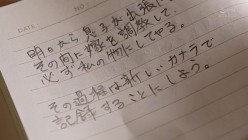 DATE
NO
明日から息子が出張に
その間に嫁を調教して
必ず私の物にしてやる。
その過程は新しいカメラで
記録することにしよう。